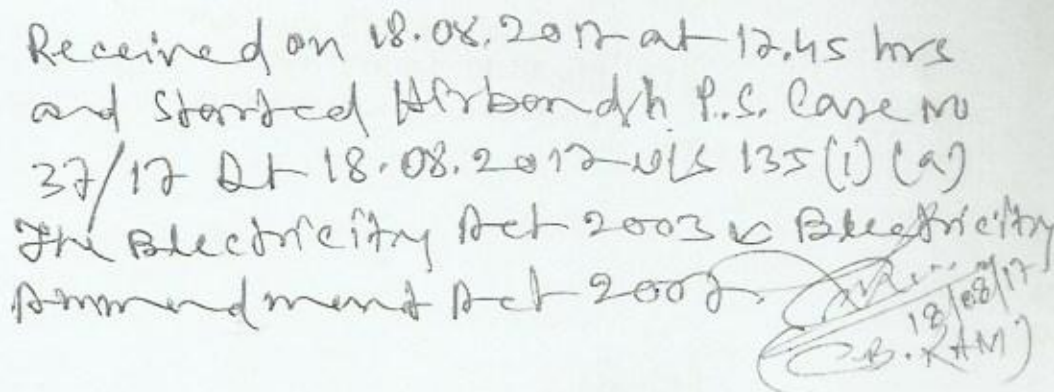 Received on 18.08.2017 at 17.45 hrs
and Started Hirbandh P.S. Case no
37/17 Dt 18.08.2017 u/s 135(1)(a)
The Electricity Act 2003 & Electricity
Ammendment Act 2007.
18/08/17
(B. RAM)